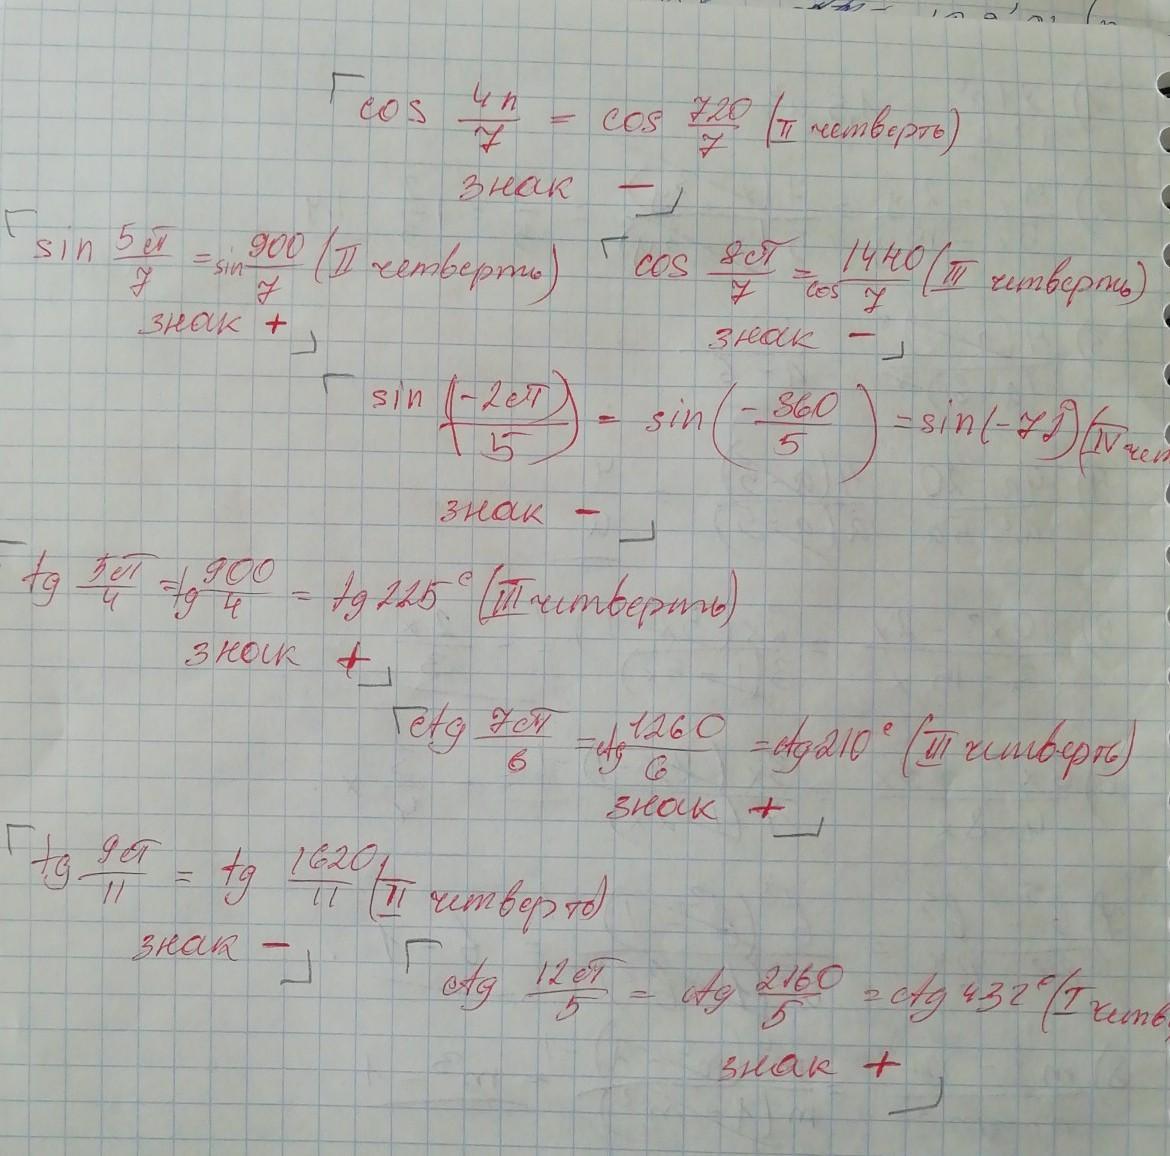 cos 4п/7 = cos 720/7 (II четверть)
знак −
sin 5π/7 = sin 900/7 (II четверть)
знак +
cos 8π/7 = cos 1440/7 (III четверть)
знак −
sin (−2π/5) = sin (−360/5) = sin (−72°) (IV чет
знак −
tg 5π/4 = tg 900/4 = tg 225° (III четверть)
знак +
ctg 7π/6 = ctg 1260/6 = ctg 210° (III четверть)
знак +
tg 9π/11 = tg 1620/11 (II четверть)
знак −
ctg 12π/5 = ctg 2160/5 = ctg 432° (I четв
знак +